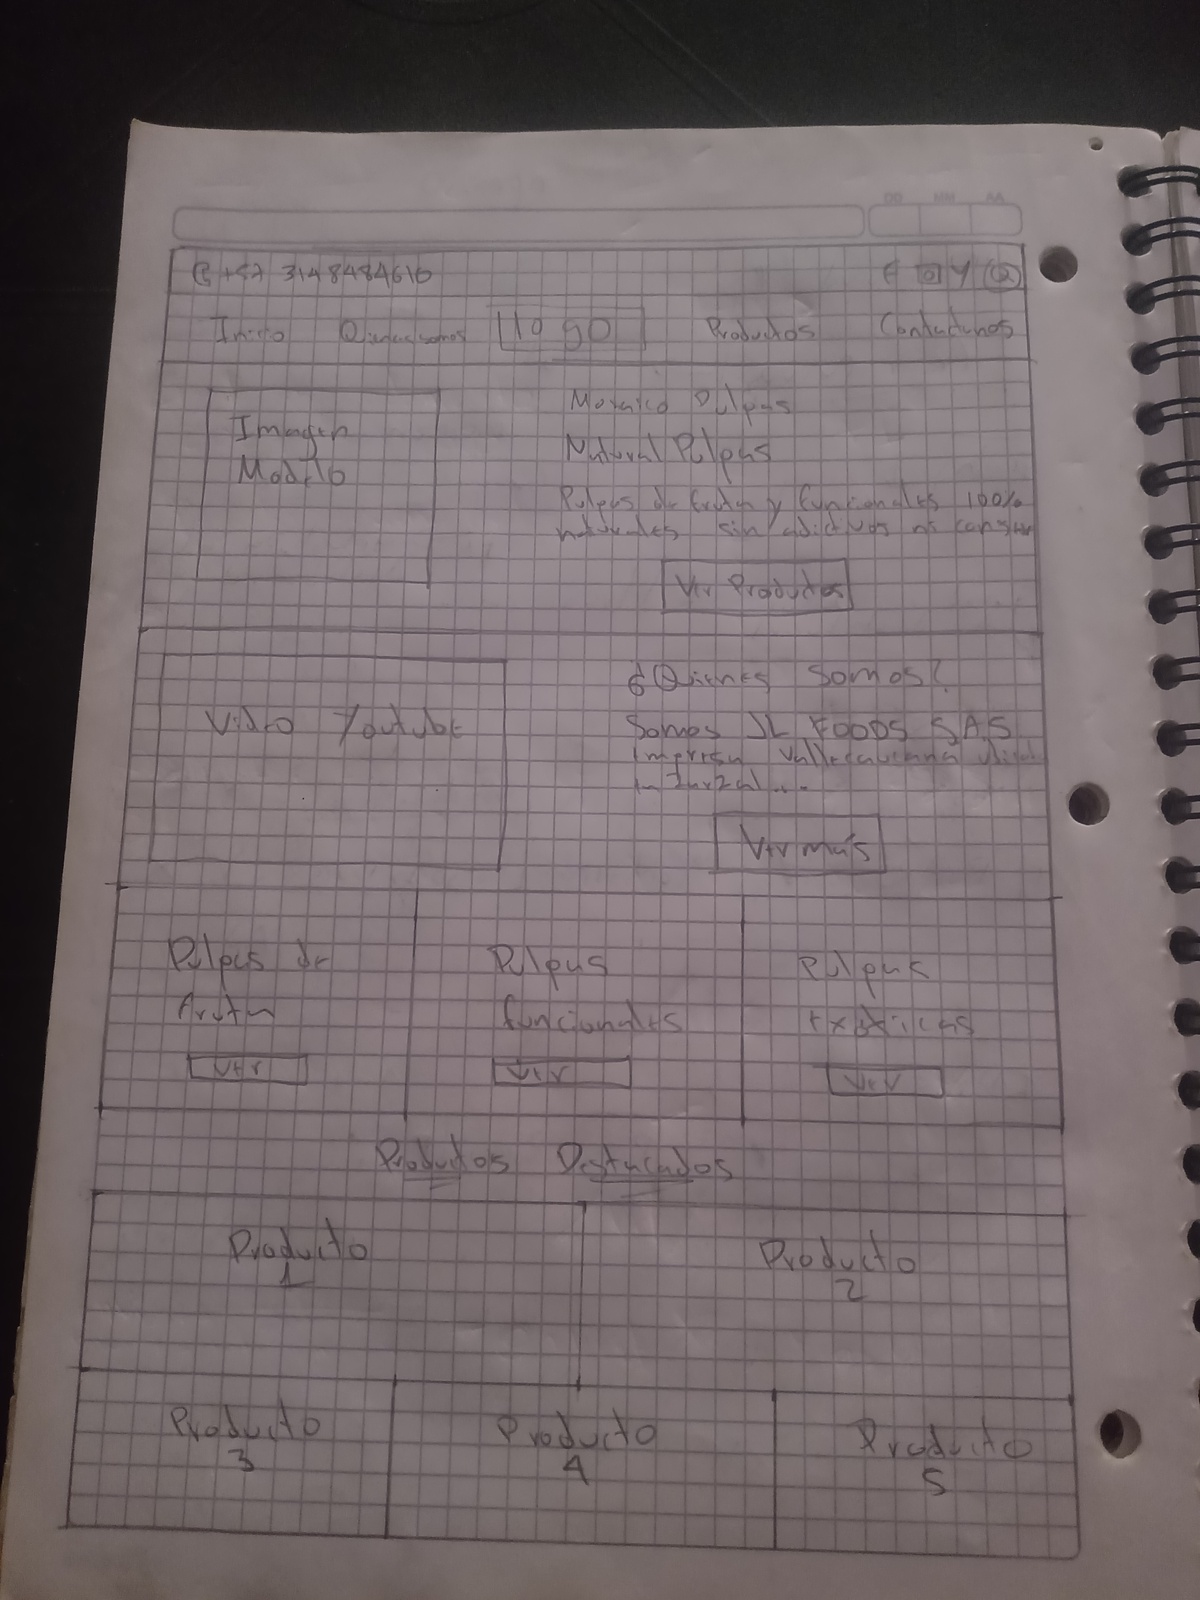 +57 3148484616
Inicio Quienes somos logo Productos Contactanos
Imagen
Modelo
Mosaico Pulpas
Natural Pulpas
Pulpas de fruta y funcionales 100%
naturales sin aditivos ni conser
Ver Productos
Video Youtube
¿Quienes Somos?
Somos JL FOODS S.A.S
Empresa Vallecaucana
Ver más
Pulpas de
fruta
Ver
Pulpas
funcionales
Ver
Pulpas
exóticas
Ver
Productos Destacados
Producto
1
Producto
2
Producto
3
Producto
4
Producto
5